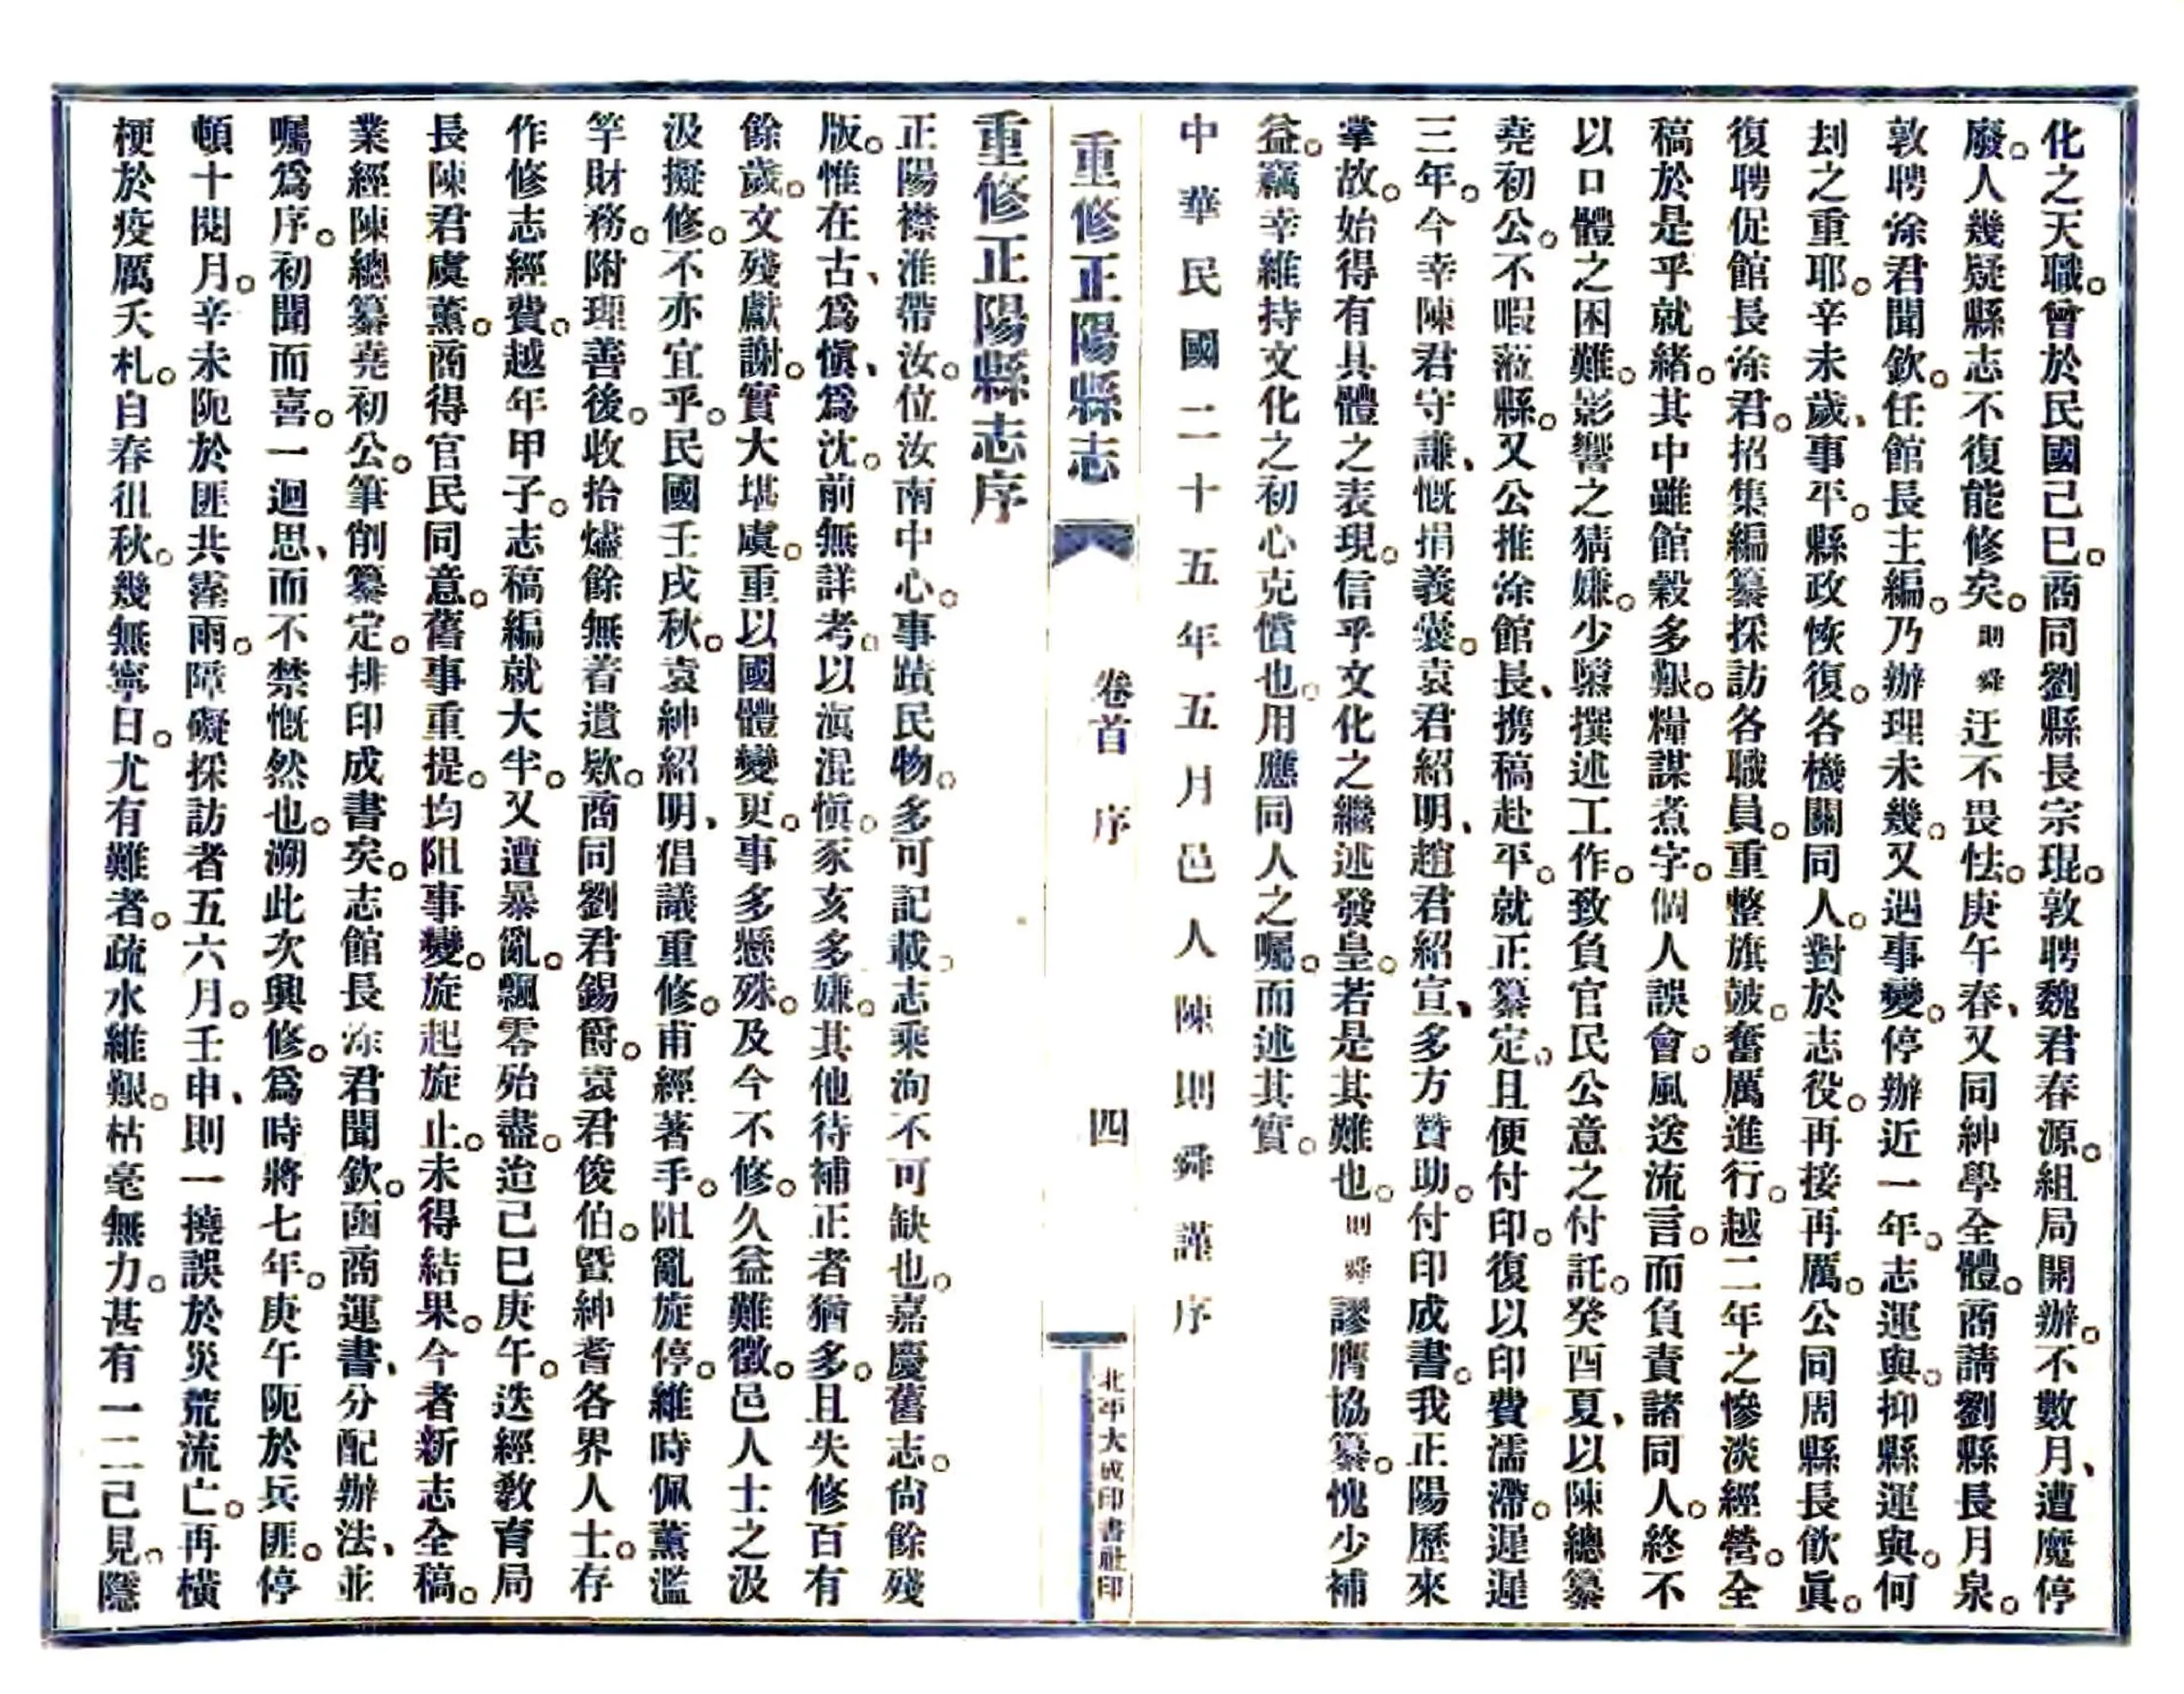 化之天職。曾於民國己巳。商同劉縣長宗琨。敦聘魏君春源。組局開辦。不數月、遭魔停
廢。人幾疑縣志不復能修矣。則舜迂不畏怯。庚午春、又同紳學全體。商請劉縣長月泉。
敦聘涂君聞欽。任館長主編。乃辦理未幾。又遇事變。停辦近一年。志運與。抑縣運與。何
刦之重耶。辛未歲、事平。縣政恢復。各機關同人。對於志役。再接再厲。公同周縣長飲眞。
復聘促館長涂君。招集編纂採訪各職員。重整旗皷。奮厲進行。越二年之慘淡經營。全
稿於是乎就緒。其中雖館穀多艱。糧謀煮字。個人誤會。風送流言。而負責諸同人。終不
以口體之困難。影響之猜嫌。少隳撰述工作。致負官民公意之付託。癸酉夏、以陳總纂
堯初公。不暇蒞縣。又公推涂館長、携稿赴平。就正纂定。且便付印。復以印費濡滯。遲遲
三年。今幸陳君守謙、慨捐義囊。袁君紹明、趙君紹宣、多方贊助。付印成書。我正陽歷來
掌故。始得有具體之表現。信乎文化之繼述發皇。若是其難也。則舜謬膺協纂。愧少補
益。竊幸維持文化之初心克償也。用應同人之囑。而述其實。
中華民國二十五年五月邑人陳則舜謹序
重修正陽縣志
卷首 序
四
北平大成印書社印
重修正陽縣志序
正陽襟淮帶汝。位汝南中心。事蹟民物。多可記載。志乘洵不可缺也。嘉慶舊志。尙餘殘
版。惟在古、爲愼、爲沈。前無詳考。以滇混愼。豕亥多嫌。其他待補正者猶多。且失修百有
餘歲。文殘獻謝。實大堪虞。重以國體變更。事多懸殊。及今不修。久益難徵。邑人士之汲
汲擬修。不亦宜乎。民國壬戌秋。袁紳紹明、倡議重修。甫經著手。阻亂旋停。維時佩薰濫
竽財務。附理善後。收拾燼餘無着遺欵。商同劉君錫爵。袁君俊伯。暨紳耆各界人士。存
作修志經費。越年甲子。志稿編就大半。又遭暴亂。飄零殆盡。迨己巳庚午。迭經敎育局
長陳君虞薰。商得官民同意。舊事重提。均阻事變。旋起旋止。未得結果。今者新志全稿。
業經陳總纂堯初公。筆削纂定。排印成書矣。志館長涂君聞欽。函商運書、分配辦法、並
囑爲序。初聞而喜。一迴思、而不禁慨然也。溯此次興修。爲時將七年。庚午阨於兵匪。停
頓十閱月。辛未阨於匪共霪雨。障礙採訪者五六月。壬申、則一撓誤於災荒流亡。再橫
梗於疫厲夭札。自春徂秋。幾無寧日。尤有難者。疏水維艱。枯毫無力。甚有一二己見。隱